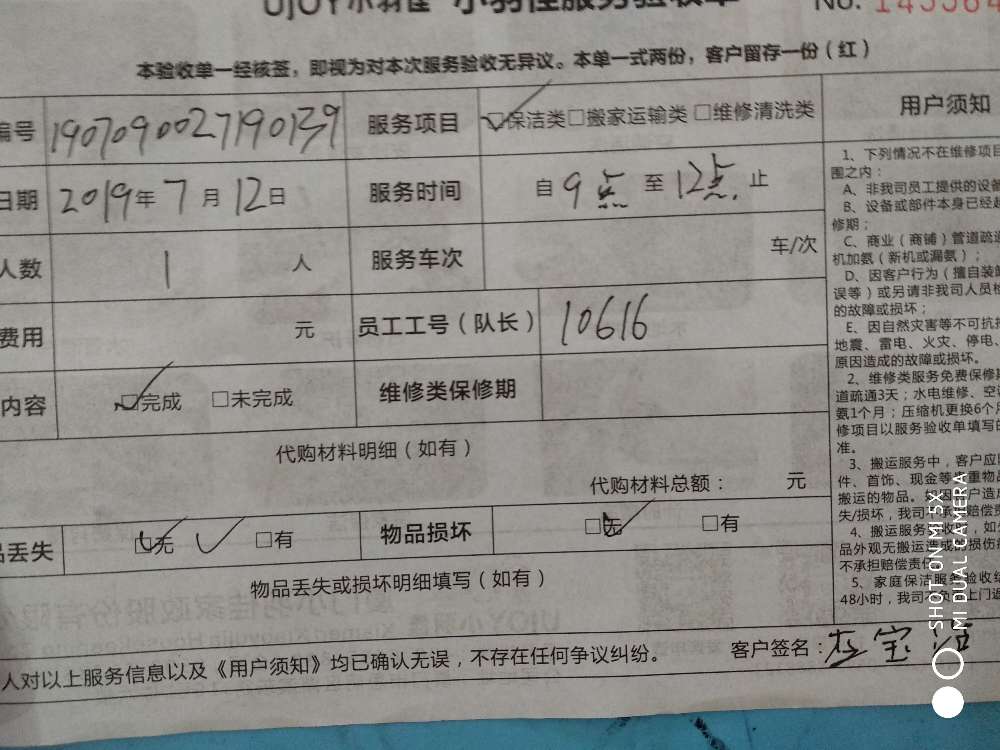 UJOY小羽佳 小羽佳服务验收单 No. 145564
本验收单一经核签，即视为对本次服务验收无异议。本单一式两份，客户留存一份（红）
编号 1907090027190139 服务项目 □保洁类□搬家运输类 □维修清洗类 用户须知
日期 2019年 7 月 12日 服务时间 自 9点 至 12点 止
人数 1 人 服务车次 车/次
费用 元 员工工号（队长） 10616
内容 □完成 □未完成 维修类保修期
代购材料明细（如有）
代购材料总额： 元
品丢失 □无 □有 物品损坏 □无 □有
物品丢失或损坏明细填写（如有）
人对以上服务信息以及《用户须知》均已确认无误，不存在任何争议纠纷。 客户签名：
1、下列情况不在维修项目
围之内：
A、非我司员工提供的设备
B、设备或部件本身已经超
修期；
C、商业（商铺）管道疏通
机加氨（新机或漏氨）；
D、因客户行为（擅自装
误等）或另请非我司人员检
的故障或损坏；
E、因自然灾害等不可抗
地震、雷电、火灾、停电、
原因造成的故障或损坏。
2、维修类服务免费保修期
道疏通3天；水电维修、空
氨1个月；压缩机更换6个月
修项目以服务验收单填写的
准。
3、搬运服务中，客户应
件、首饰、现金等贵重物品
搬运的物品。如因客户造
失/损坏，我司不承担赔偿责
4、搬运服务验收后，如
品外观无搬运造成的损伤
不承担赔偿责任
5、家庭保洁服务验收
48小时，我司不负责上门返
SHOT ON MI 5X
MI DUAL CAMERA